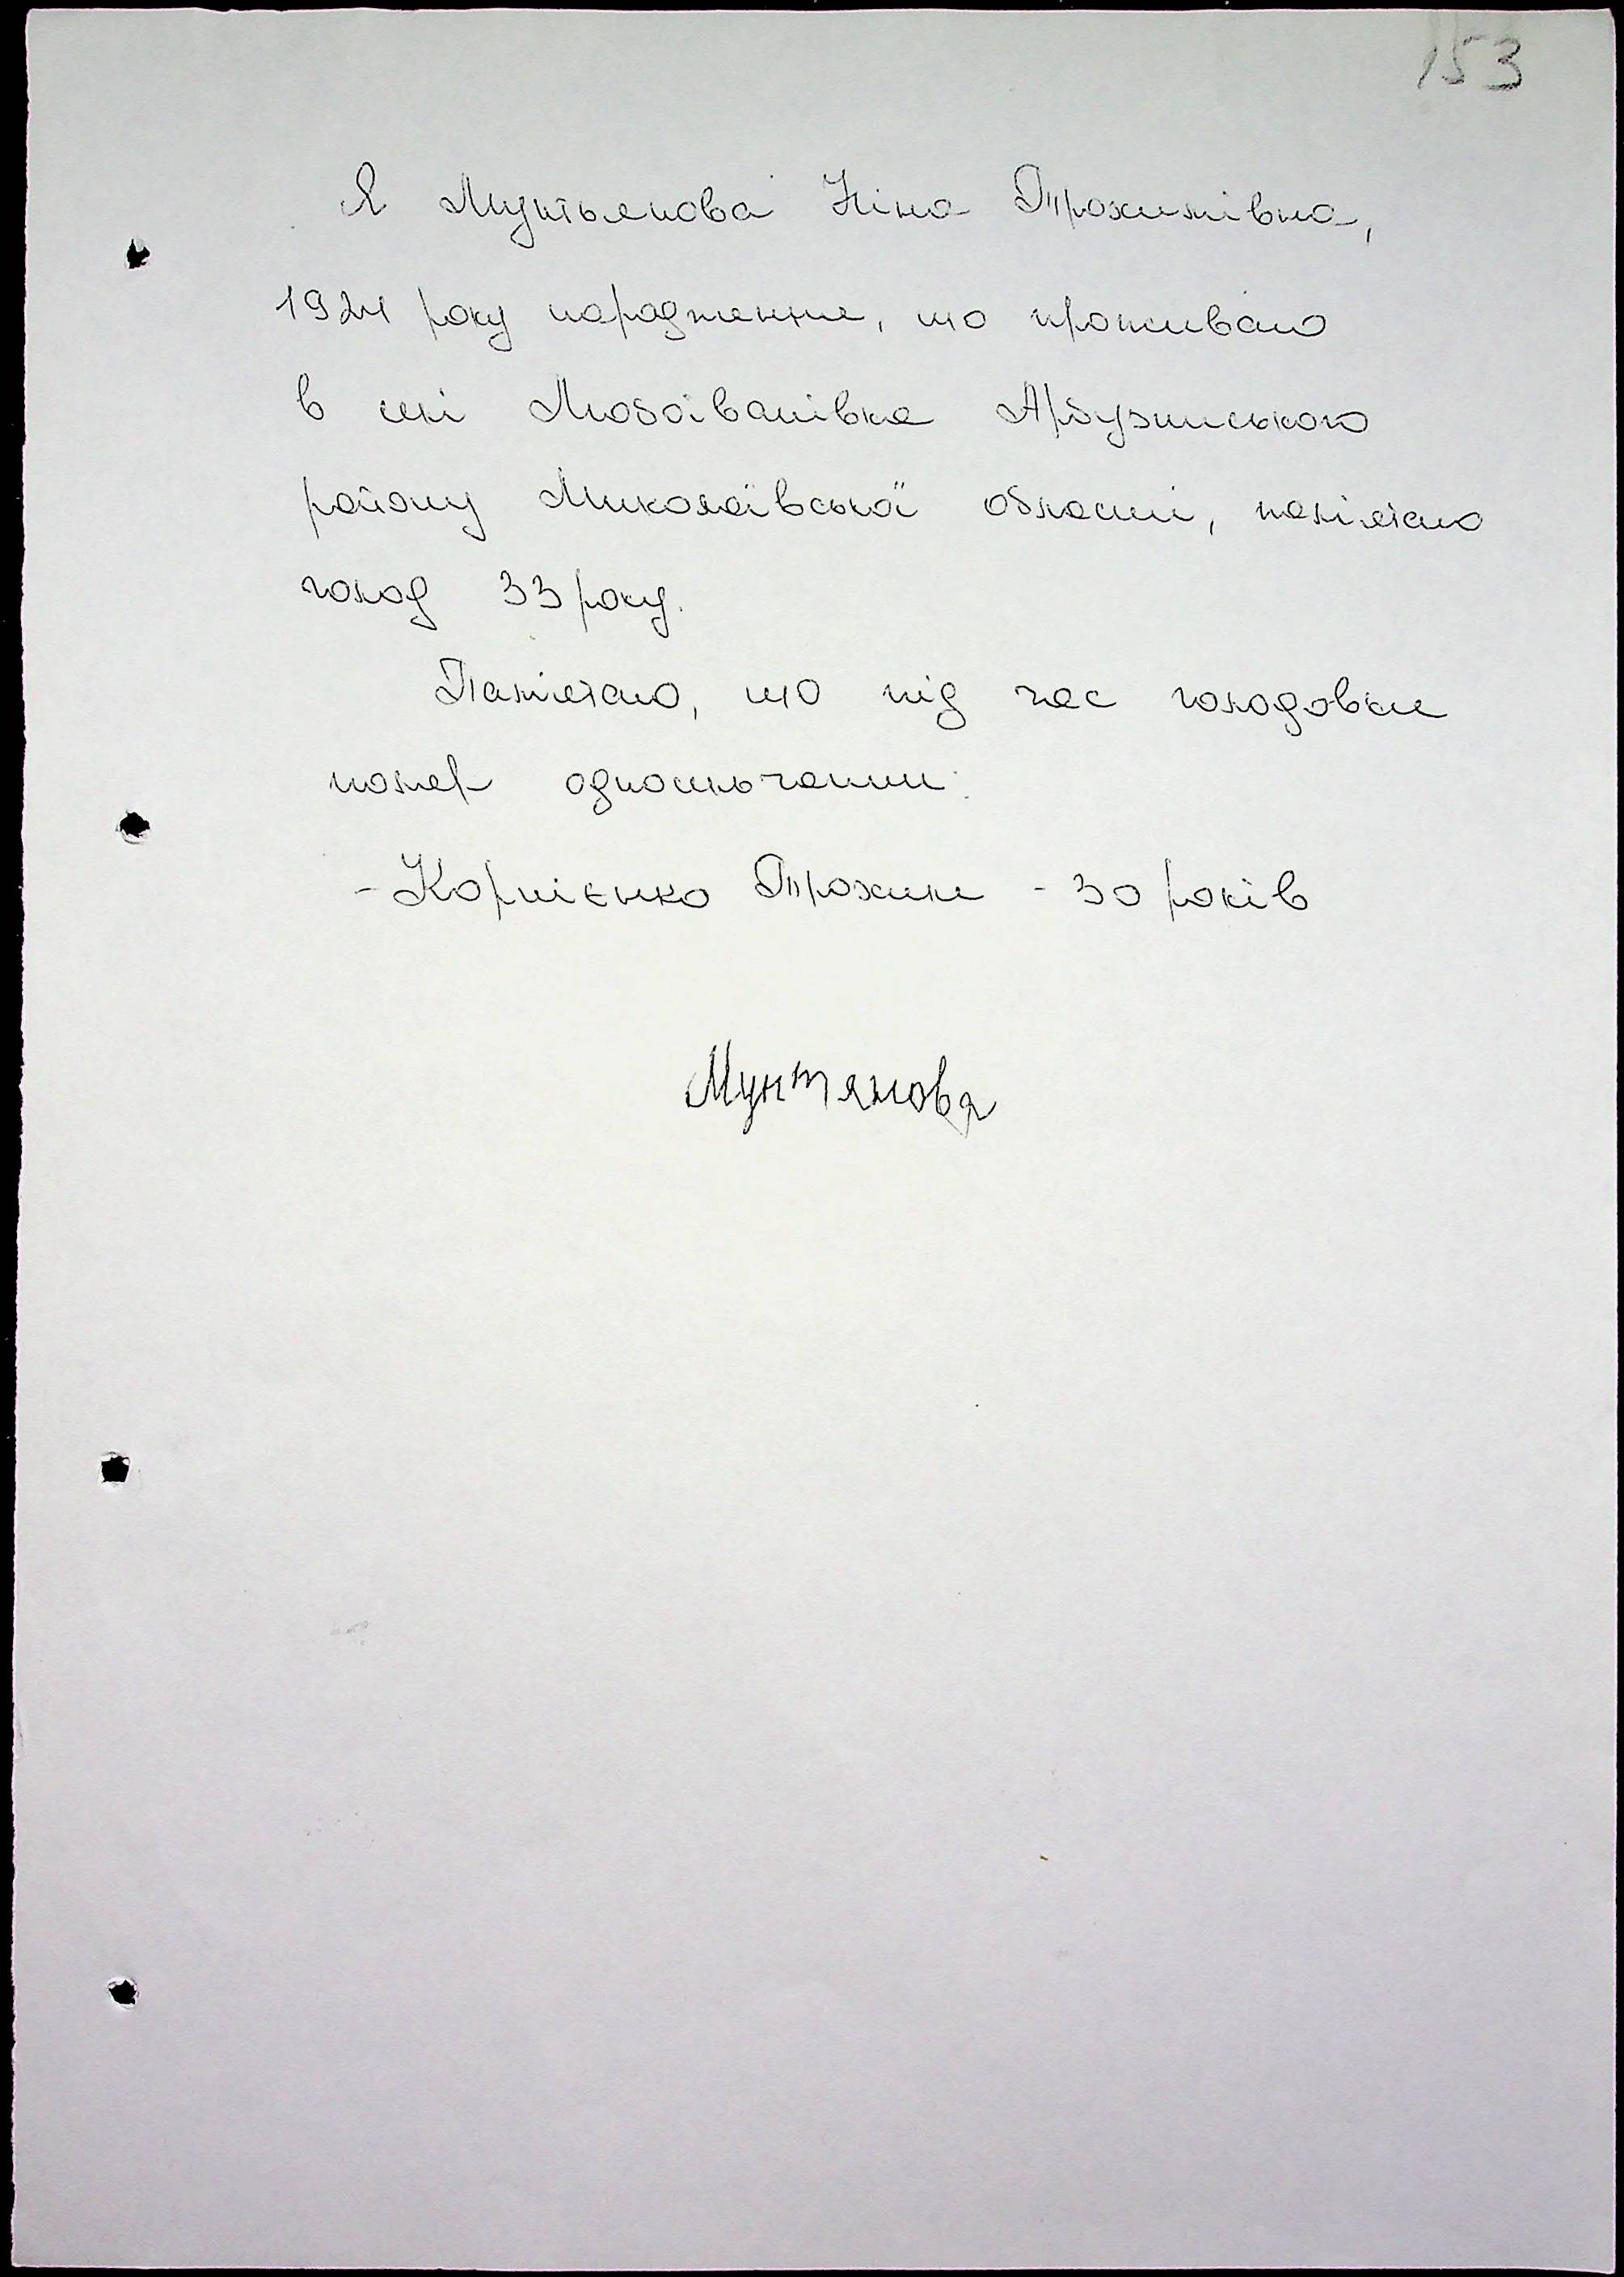 153
Я Мунтьянова Ніна Трохимівна,
1924 року народження, що проживаю
в селі Любоіванівка Арбузинського
району Миколаївської області, пам'ятаю
голод 33 року.
Пам'ятаю, що під час голодовки
помер односельчанин:
- Корнієнко Трохим - 30 років
Мунтянова